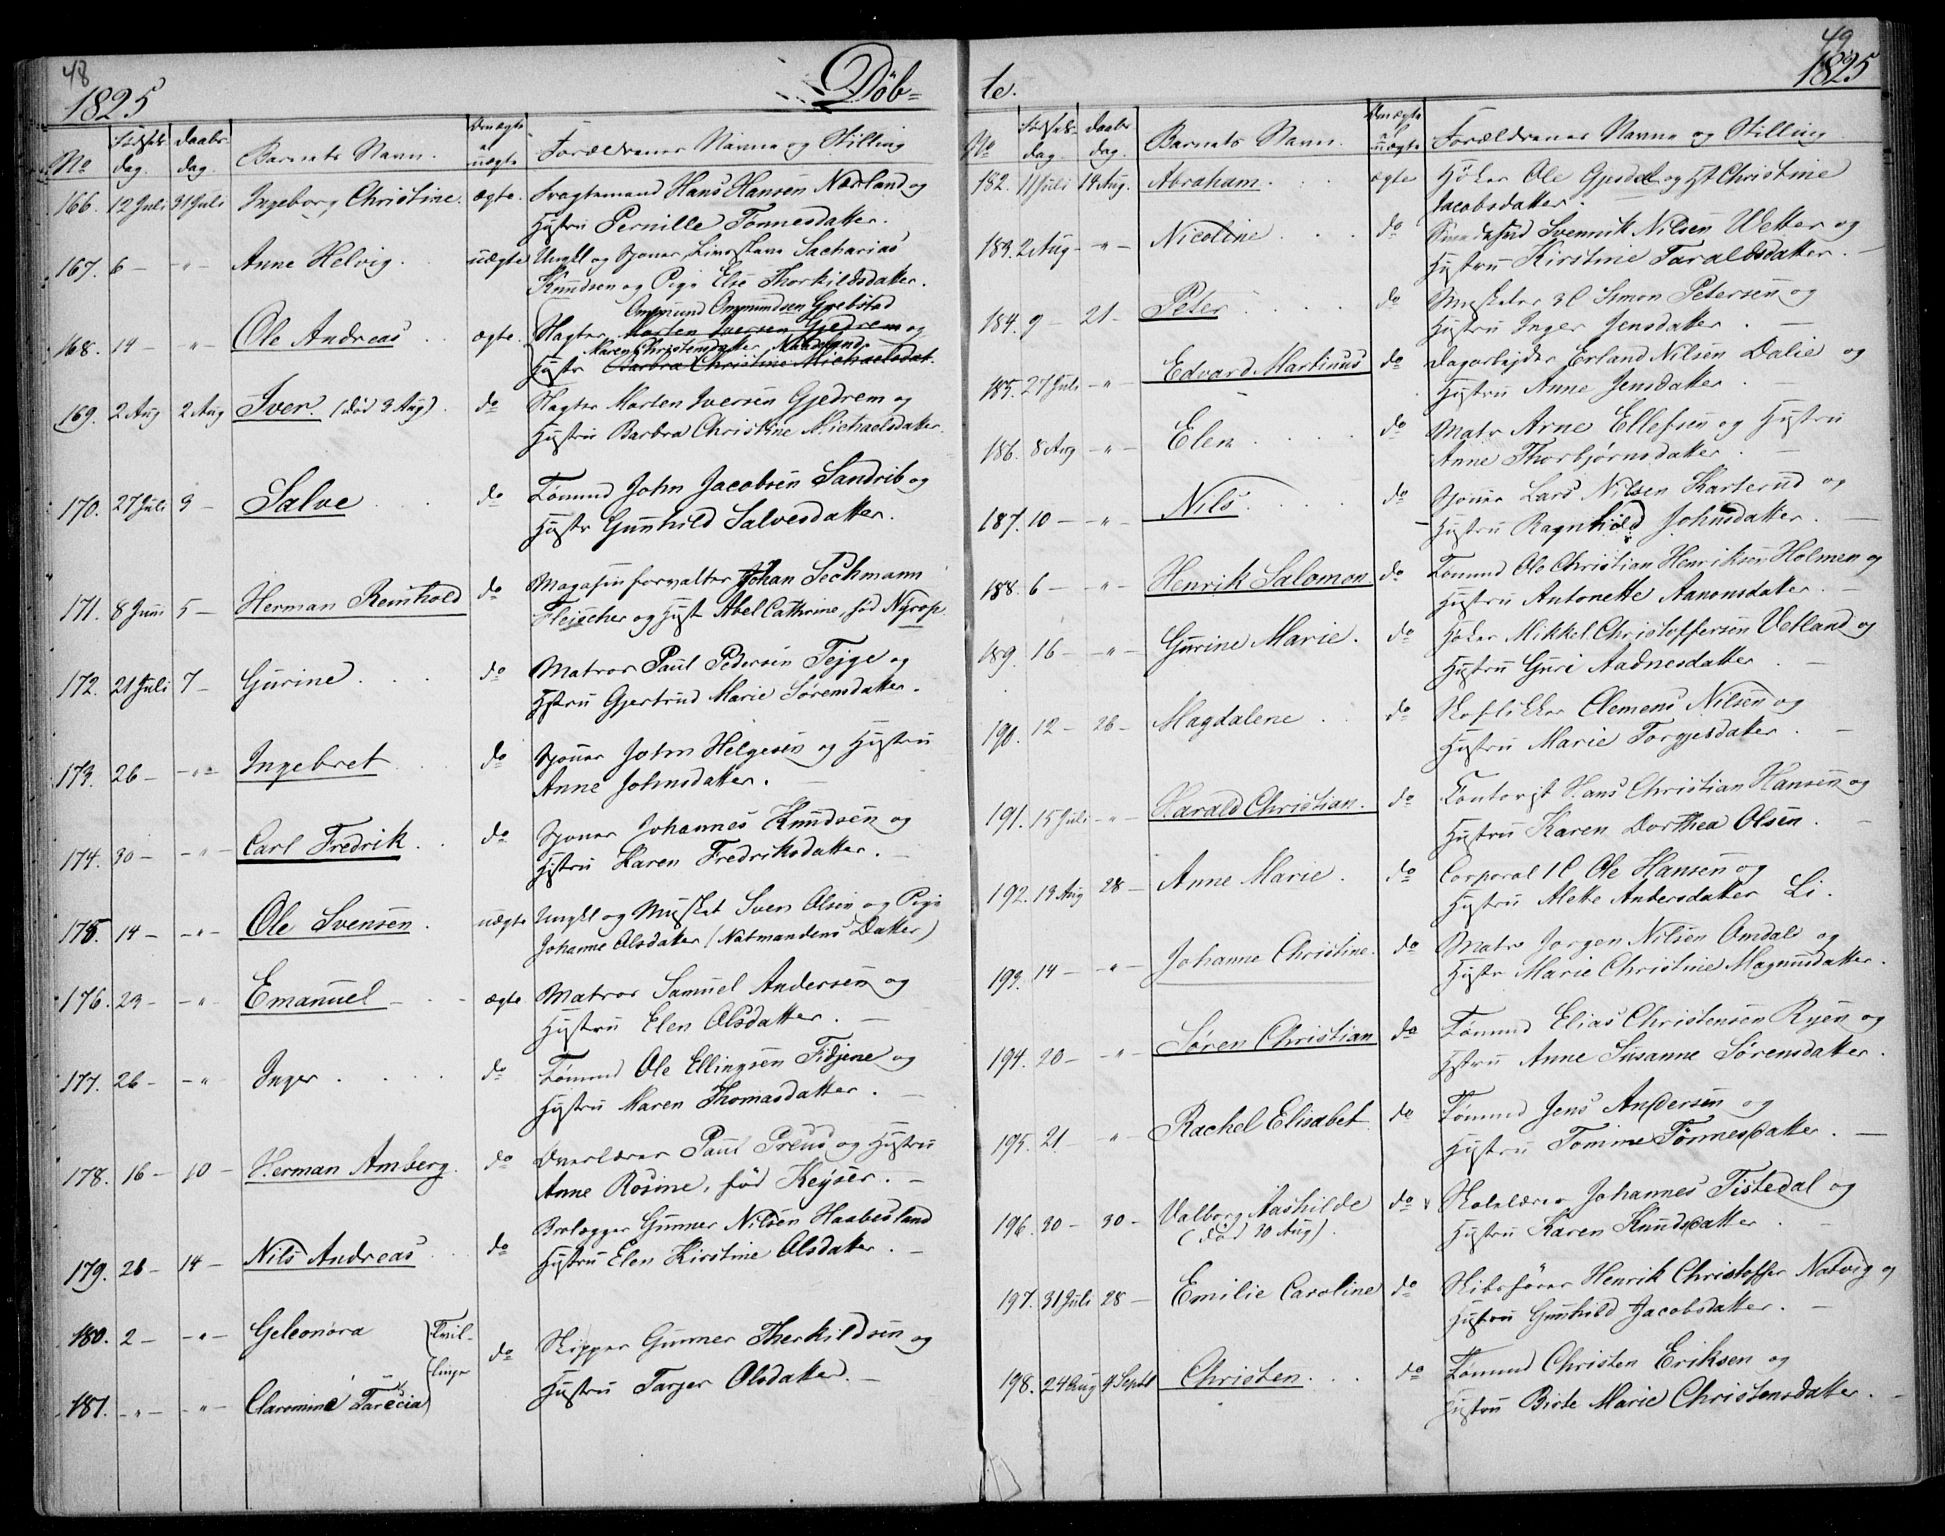 48
1825
Døb=
No
Fødsels dag.
Daabs dag.
Barnets Navn.
Om ægte el uægte
Forældrenes Navne og Stilling
166. 12 Juli 31 Juli Ingeborg Christine. ægte. Fragtemand Hans Hansen Nærland og
Hustru Pernille Tonnesdatter.
167. 6 — -"- Anne Helvig. uægte Ungkl og Sjouer Zacharias
Knudsen og Pige Else Thorkildsdatter.
Ommund Ommundsen Gjebstad
168. 14 — -"- Ole Andreas ægte. Slagter Morten Iversen Gjedrem og
Maren Christensdatter
Hustr Barbra Christine Michaelsdat.
169. 2 Aug 2 Aug Iver. (død 3 Aug). do Slagter Morten Iversen Gjedrem og
Hustru Barbra Christine Michaelsdatter.
170. 27 Juli 3 — Salve do Tømmd John Jacobsen Sandrib og
Hustr Gunhild Salvesdatter.
171. 8 Juni 5 — Herman Reinhold do Magasinforvalter Johan Sechmann
Fleischer og Hust Abel Cathrine, fød Nyrop.
172. 21 Juli 7 — Gurine do Matros Paul Pedersen Tejge og
Hustru Gjertrud Marie Sørensdatter.
173. 26 — -"- Ingebret do Sjouer John Helgesen og Hustru
Anne Johnsdatter.
174. 30 — -"- Carl Fredrik do Sjouer Johannes Knudsen og
Hustru Karen Fredriksdatter.
175. 14 — -"- Ole Svensen uægte Ungkl og Musket Sven Olsen og Pige
Johanne Olsdatter (Natmandens Datter)
176. 23 — -"- Emanuel ægte Matros Samuel Andersen og
Hustru Elen Olsdatter.
177. 26 — -"- Inger do Tømmd Ole Ellingsen Fidjene og
Hustru Maren Thomasdatter.
178. 16 — 10 — Herman Amberg. do Overlærer Paul Preus og Hustru
Anne Rosine, fød Keyser.
179. 26 — 14 — Nils Andreas do Brolægger Gunner Nilsen Haabesland
Hustru Elen Kirstine Olsdatter.
180. 2 — -"- Geleonora (Tvil- do Skipper Gunner Therkildsen og
181. -"- -"- Claremine Tarecia linge Hustru Targer Olsdatter.
49
te.
1825
No
Fødsels dag.
Daabs dag.
Barnets Navn.
Om ægte el uægte
Forældrenes Navne og Stilling
182. 11 Juli 14 Aug. Abraham. ægte Høker Ole og H Christine
Jacobsdatter.
183. 2 Aug -"- Nicoline do Svennik Nilsen Wetter og
Hustru Kirstine Taraldsdatter.
184. 9 — 21 — Peter do Musketer 3C Simon Petersen og
Hustru Inger Jensdatter.
185. 27 Juli -"- Edvard Martinus do Dagarbejder Erland Nilsen Dalie og
Hustru Anne Jensdatter.
186. 8 Aug -"- Elen do Matr Arne Ellefsen og Hustru
Anne Thorbjørnsdatter.
187. 10 — -"- Nils do Sjouer Lars Nilsen Karterud og
Hustru Ragnhild Johnsdatter.
188. 6 — -"- Henrik Salomon do Tømmd Ole Christian Henriksen Holmen og
Hustru Antonette Aanonsdatter.
189. 16 — -"- Gurine Marie. do Høker Mikkel Christoffersen Vetland og
Hustru Guri Aadnesdatter.
190. 12 — 26 — Magdalene do Skoflikker Clemens Nilsen og
Hustru Marie Torgjesdatter.
191. 15 Juli -"- Harald Christian. do Contorist Hans Christian Hansen og
Hustru Karen Dorthea Olsen.
192. 13 Aug 28 — Anne Marie. do Corporal 1C Ole Hansen og
Hustru Alette Andersdatter Li.
193. 14 — -"- Johanne Christine. do Matr Jørgen Nilsen Omdal og
Hustr Marie Christine Magnusdatter.
194. 20 — -"- Søren Christian do Tømmd Elias Christensen Ryen og
Hustru Anne Susanne Sørensdatter.
195. 21 — -"- Rachel Elisabet do Tømmd Jens Andersen og
Hustru Tomine Tønnesdatter.
196. 30 — 30 — Valborg Aashilde do Skolelærer Johannes Tistedal og
(død 30 Aug). Hustru Karen Knudsdatter.
197. 31 Juli 28 — Emilie Caroline do Skibsfører Henrik Christoffer Natvig og
Hustru Gunhild Jacobsdatter.
198. 24 Aug 4 Septbr Christen. do Tømmd Christen Eriksen og
Hustru Birte Marie Christensdatter.